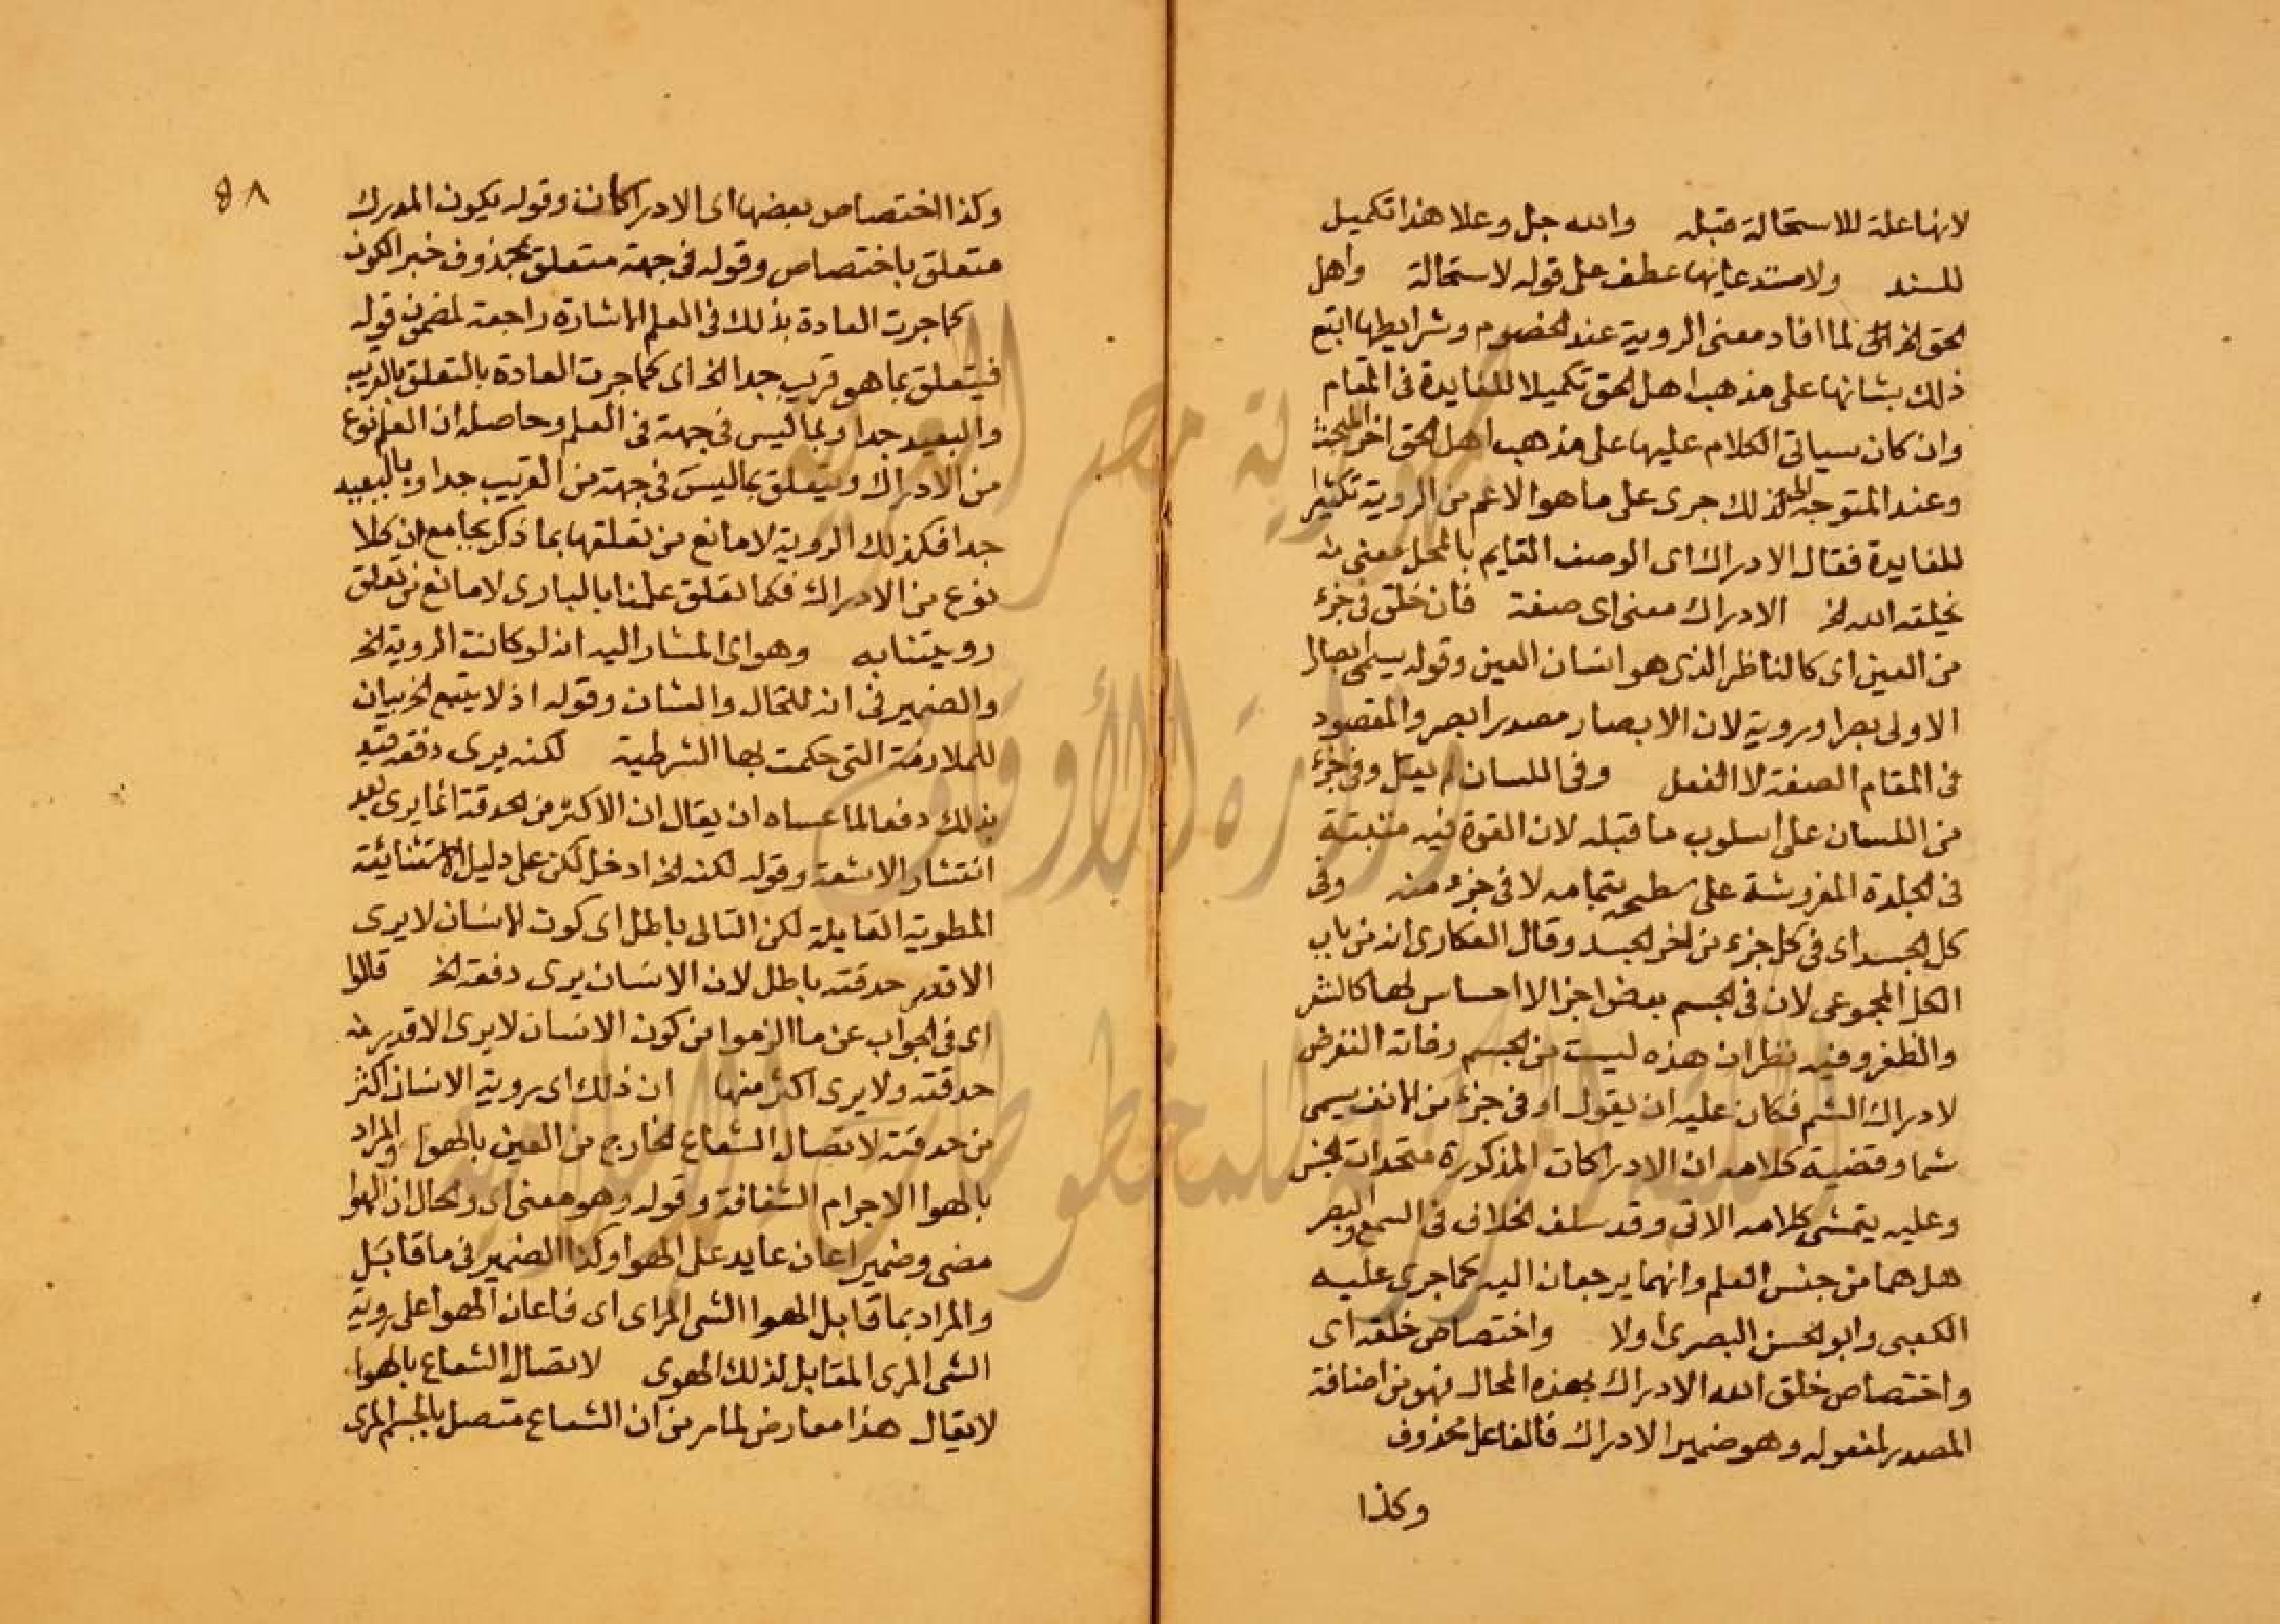 لانها علة للاستحالة قبله والله جل وعلا هذا تكميل
للسند ولا مستدعاينها عطف على قوله لاستحالة واهل
الحق الخ لما افاد معنى الروية عند الخصوم وشرايطها اتبع
ذلك بشانها على مذهب اهل الحق تكميلا للفايدة فى المقام
وان كان سياتى الكلام عليها على مذهب اهل الحق اخر المبحث
وعند المتوجه لذلك جرى على ما هو الاعم من الروية تكثيرا
للفايدة فقال الادراك اى الوصف القايم بالمحل معنى
يخلقه الله الخ الادراك معنى اى صفة فان خلق فى جزء
من العين اى كالناظر الذى هو انسان العين وقوله يسمى ابصارا
الاولى بصرا وروية لان الابصار مصدر ابصر والمقصود
فى المقام الصفة لا الفعل وفى اللسان لم يقل وفى جزء
من اللسان على اسلوب ما قبله لان القوة فيه منبثة
فى الجلدة المفروشة على سطحه بتمامه لا فى جزء منه وفى
كل الجسد اى فى كل جزء من اخر الجسد وقال العكارى انه من باب
الكل المجموعى لان فى الجسم بعض اجزا لا احساس لها كالشعر
والظفر وفيه نظر ان هذه ليست من الجسم وفاته التعرض
لادراك الشم فكان عليه ان يقول او فى جزء من الانف يسمى
شما وقضية كلامه ان الادراكات المذكورة متحدات الجنس
وعليه يتمشى كلامه الاتى وقد سلف الخلاف فى السمع والبصر
هل هما من جنس العلم وانهما يرجعان اليه كما جرى عليه
الكعبى وابو الحسن البصرى اولا واختصاص خلقه اى
واختصاص خلق الله الادراك بهذه المحال فهو من اضافة
المصدر لمفعوله وهو ضمير الادراك فالفاعل محذوف
وكذا
٨٥
وكذا اختصاص بعضها اى الادراكات وقوله يكون المدرك
متعلق باختصاص وقوله فى جهة متعلق بمحذوف خبر الكون
كما جرت العادة بذلك فى العلم الاشارة راجعة لمضمون قوله
فيتعلق بما هو قريب جدا الخ اى كما جرت العادة بالتعلق بالقريب
والبعيد جدا وبما ليس فى جهة فى العلم وحاصله ان العلم نوع
من الادراك ويتعلق بما ليس فى جهة من القريب جدا وبالبعيد
جدا فكذلك الروية لا مانع من تعلقها بما ذكر بجامع ان كلا
نوع من الادراك فكما تعلق علمنا بالبارى لا مانع من تعلق
رويتنا به وهو اى المشار اليه انه لو كانت الروية الخ
والضمير فى انه للحال والشان وقوله اذ لا يتبع الخ بيان
للملازمة التى حكمت بها الشرطية لكنه يرى دفعة قيد
بذلك دفعا لما عساه ان يقال ان الاكثر من الحدقة انما يرى بعد
انتشار الاشعة وقوله لكنه الخ ادخل لكن على دليل الاستثنائية
المطوية القايلة لكن التالى باطل اى كون الانسان لا يرى
الا قدر حدقته باطل لان الانسان يرى دفعة الخ قالوا
اى فى الجواب عن ما الزموا من كون الانسان لا يرى الا قدر
حدقته ولا يرى اكثر منها ان ذلك اى روية الانسان اكثر
من حدقته لاتصال الشعاع الخارج من العين بالهوا والمراد
بالهوا الاجرام الشفافة وقوله وهو معنى اى والحال ان الهوا
مضى وضمير اعان عايد على الهوا وكذا الضمير فى ما قابل
والمراد بما قابل الهوا الشى المراى اى فاعان الهوا على روية
الشى المرى المقابل لذلك الهوى لاتصال الشعاع بالهوا
لا يقال هذا معارض لما مر من ان الشعاع متصل بالجسم المرى
جمهورية مصر العربية
وزارة الأوقاف
المكتبة المركزية للمخطوطات الإسلامية